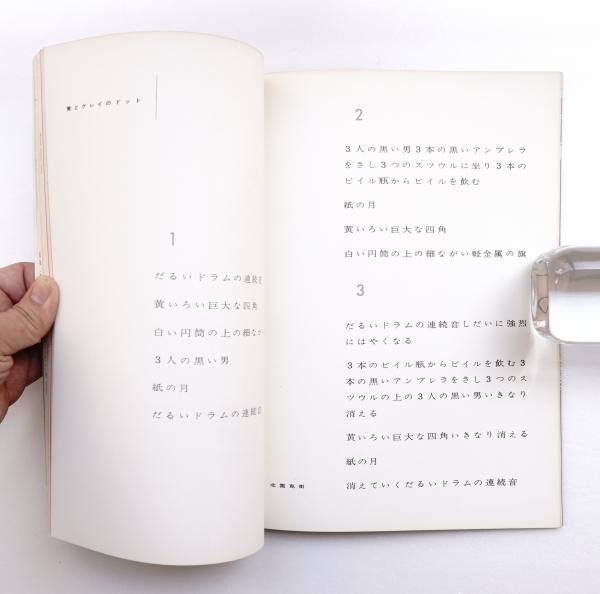 黄とグレイのドット
1
だるいドラムの連続音
黄いろい巨大な四角
白い円筒の上の細なが
3人の黒い男
紙の月
だるいドラムの連続音
2
3人の黒い男3本の黒いアンブレラ
をさし3つのスツウルに坐り3本の
ビイル瓶からビイルを飲む
紙の月
黄いろい巨大な四角
白い円筒の上の細ながい軽金属の旗
3
だるいドラムの連続音しだいに強烈
にはやくなる
3本のビイル瓶からビイルを飲む3
本の黒いアンブレラをさし3つのス
ツウルの上の3人の黒い男いきなり
消える
黄いろい巨大な四角いきなり消える
紙の月
消えていくだるいドラムの連続音
北園克衛